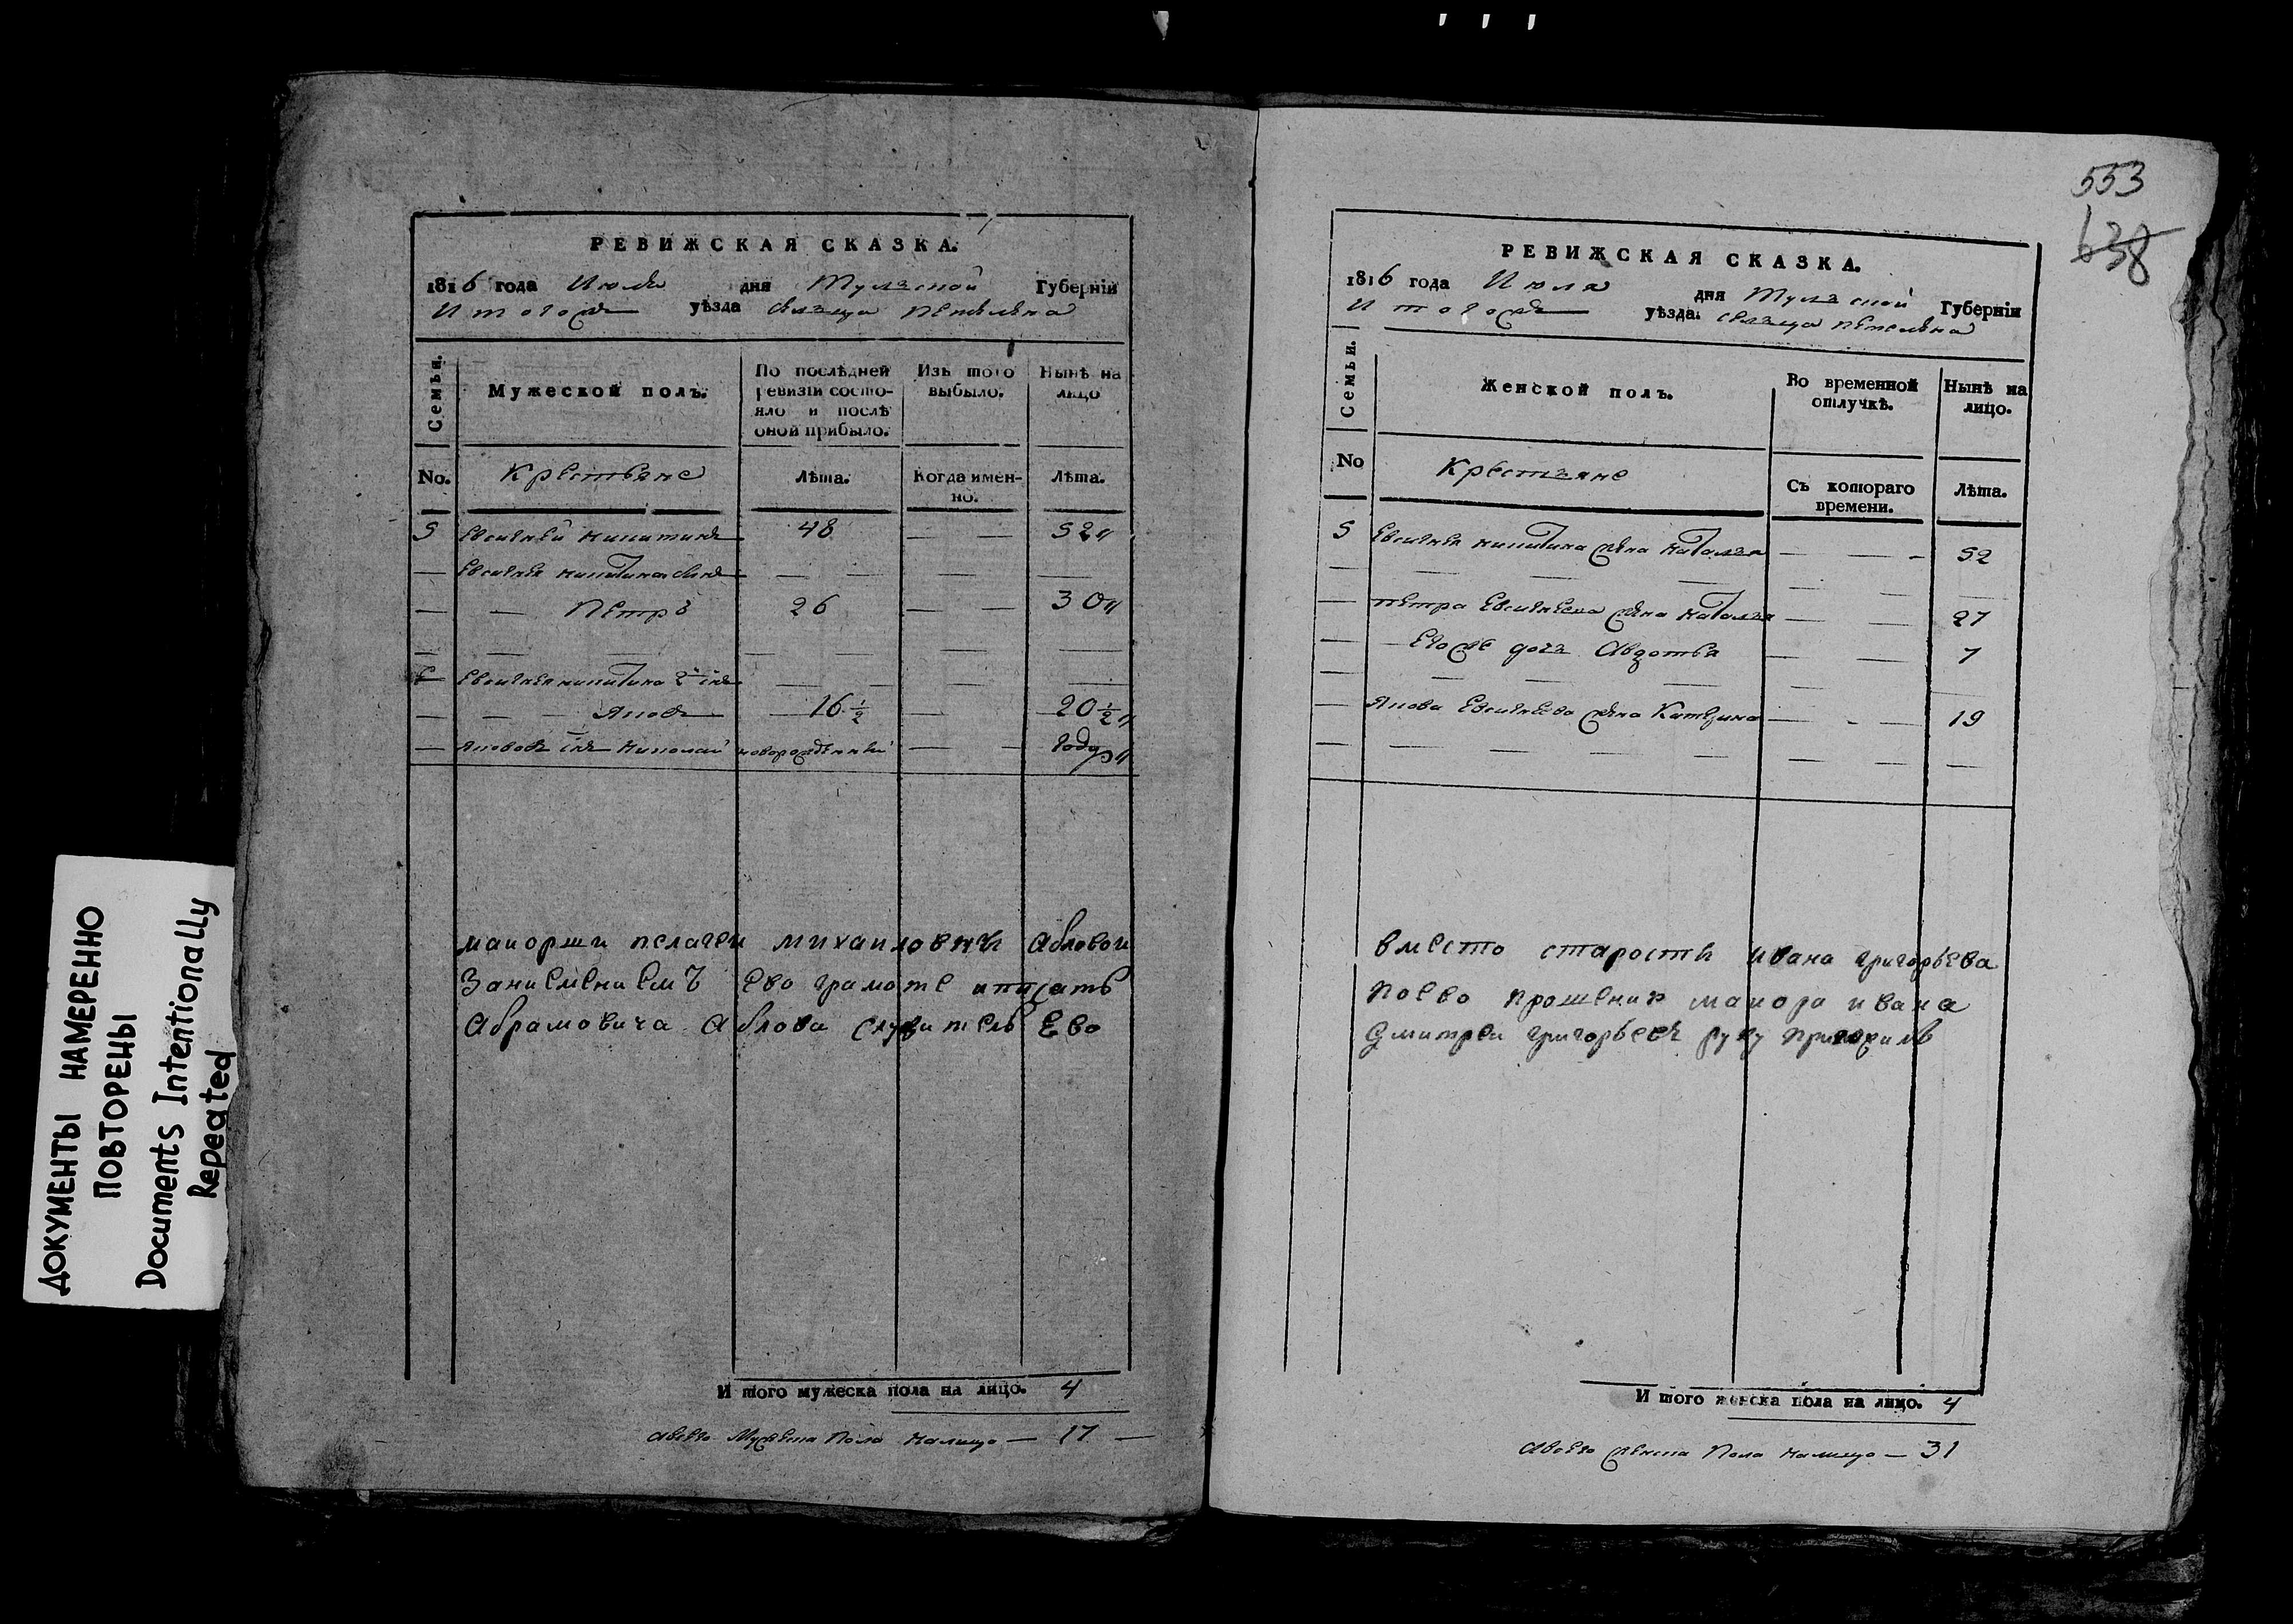 553
638
РЕВИЖСКАЯ СКАЗКА.
1816 года Июля дня Тульской Губерніи
И того же уѣзда сельца Петелина
Семьи. Мужеской полъ. По послѣдней ревизіи состояло и послѣ оной прибыло. Изъ того выбыло. Нынѣ на лицо
No. Крестьяне Лѣта. Когда именно. Лѣта.
5 Евсигней Никитинъ 48 — — 52
— Евсигнея Никитина — — — —
— — Петръ 26 — — 30
— — — — — — —
Евсигнея Никитина 2й — — — —
— — — Яковъ 16 1/2 — 20 1/2
— Яковов Николай новорожденный — — году
маиорши пелагеи михаиловны абловои
Занеуменіемъ ево грамоте иписать
Абрамовича Аблова служитель Ево
И того мужеска пола на лицо. 4
Авсего Мужеска Пола налицо — 17 —
РЕВИЖСКАЯ СКАЗКА.
1816 года Июля дня Тульской Губерніи
И того же уѣзда. сельца Петелина
Семьи. Женской полъ. Во временной отлучкѣ. Нынѣ на лицо.
No Крестьяне Съ котораго времени. Лѣта.
5 Евсигнея Никитина жена Наталья — — - 52
— — — — — — —
— Петра Евсигнеева жена Наталья — — 27
— Егоже дочь Авдотья — — 7
— — — — — —
— Якова Евсигнеева жена Катерина — - — 19
— — — — — — —
вместо старосты ивана григорьева
поево прошению маиора ивана
Дмитреи григорьевъ руку приложилъ
И того женска пола на лицо. 4
Авсего женска Пола налицо — 31
ДОКУМЕНТЫ НАМЕРЕННО
ПОВТОРЕНЫ
Documents Intentionally
Repeated